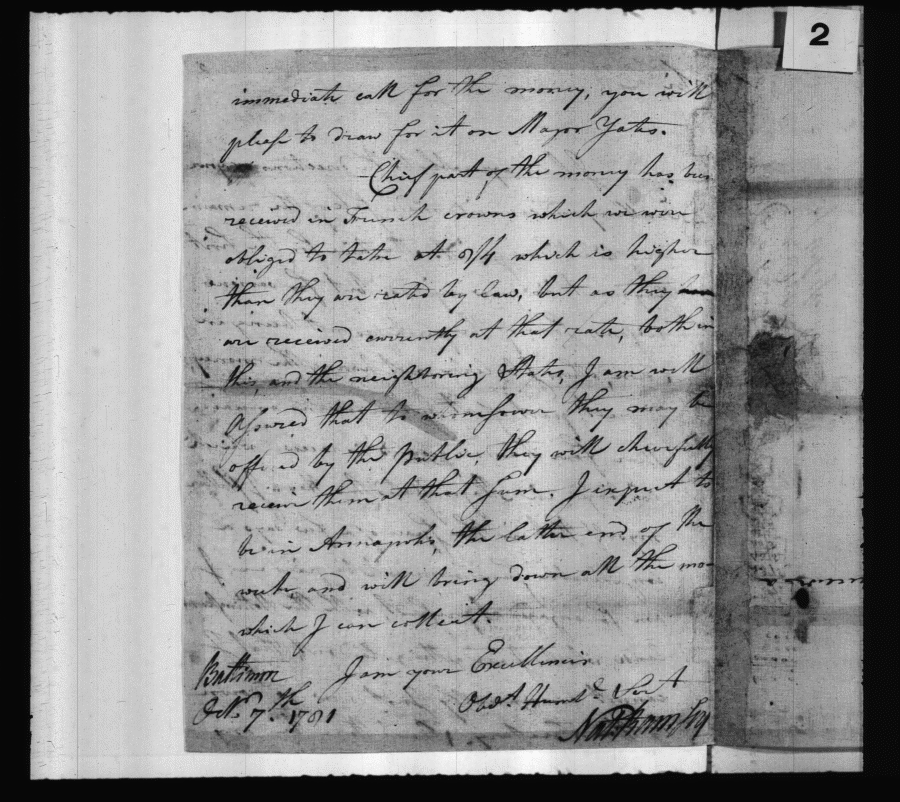 2
immediate call for the money, you will
please to draw for it on Major Yates.
Chief part of the money has been
received in French crowns which we were
obliged to take at 8/4 which is higher
than they are rated by law, but as they
are received currently at that rate, both in
this, and the neighboring States, I am well
assured that to whomsoever they may be
offered by the Public, they will chearfully
receive them at that sum. I expect to
be in Annapolis, the latter end of the
week and will bring down all the mo
which I can collect.
I am your Excellencies
Baltimore
Obdt Humble Servt
Octr. 7th. 1781
Nat